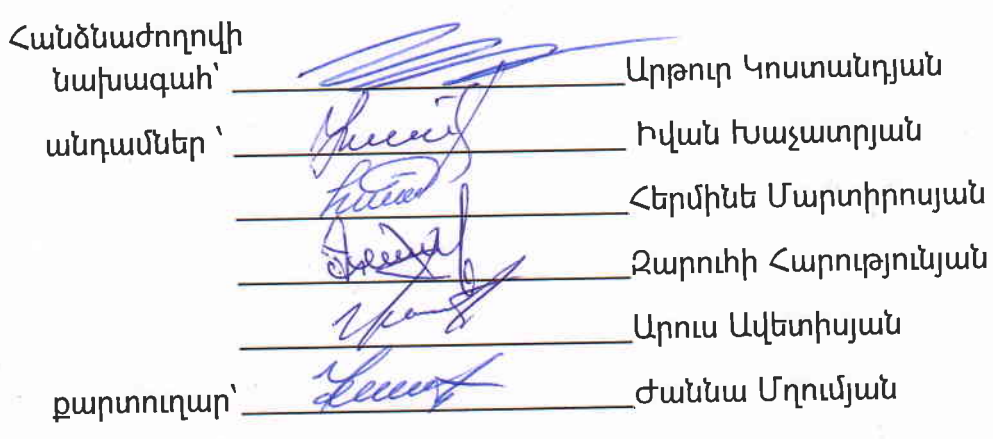 Հանձնաժողովի
նախագահ՝ Արթուր Կոստանդյան
անդամներ ՝ Իվան Խաչատրյան
Հերմինե Մարտիրոսյան
Զարուհի Հարությունյան
Արուս Ավետիսյան
քարտուղար՝ Ժաննա Մղումյան